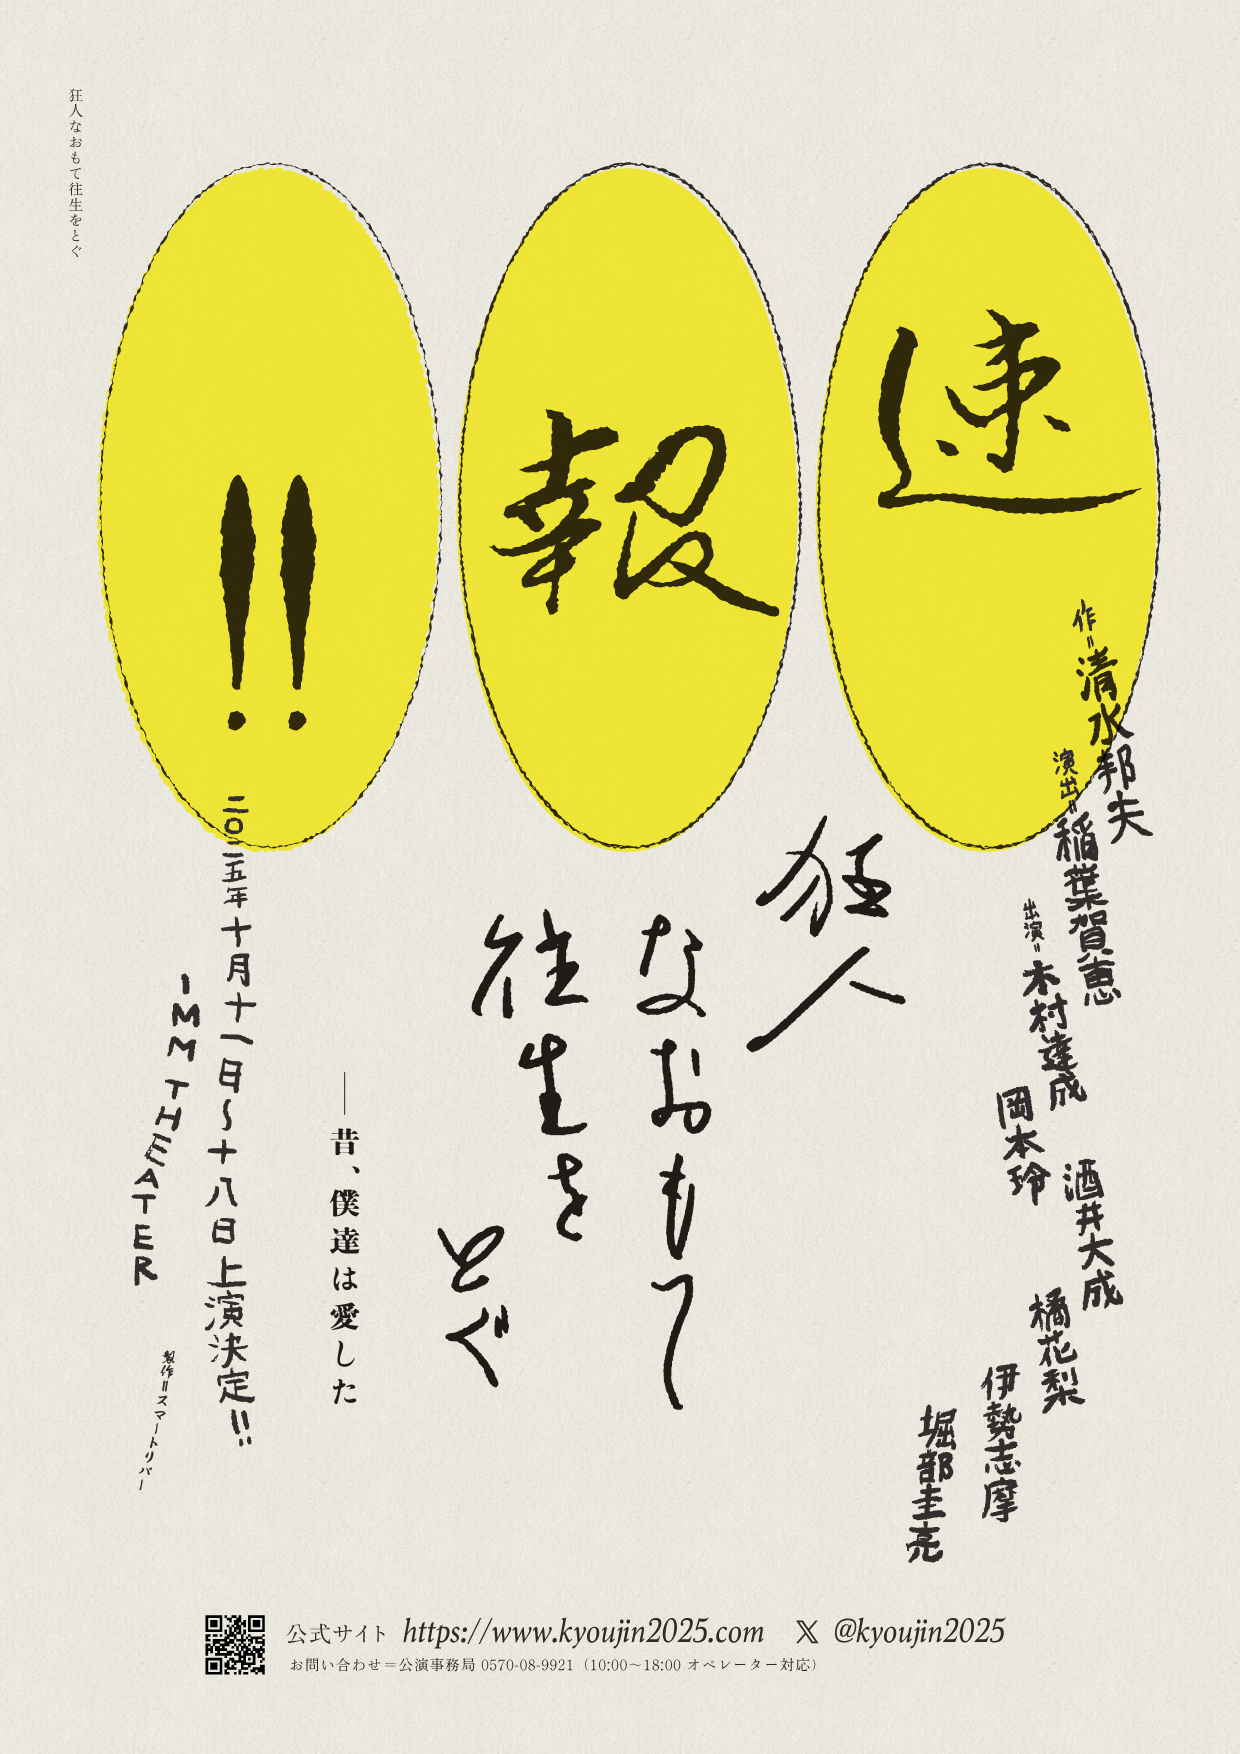 狂人なおもて往生をとぐ
速
報
!!
作=清水邦夫
演出=稲葉賀恵
出演=木村達成
岡本玲
酒井大成
橘花梨
伊勢志摩
堀部圭亮
狂人
なおもて
往生を
とぐ
——昔、僕達は愛した
二〇二五年十月十一日〜十八日上演決定!!
IMM THEATER
製作=スマートリバー
公式サイト https://www.kyoujin2025.com X @kyoujin2025
お問い合わせ=公演事務局 0570-08-9921(10:00〜18:00 オペレーター対応)